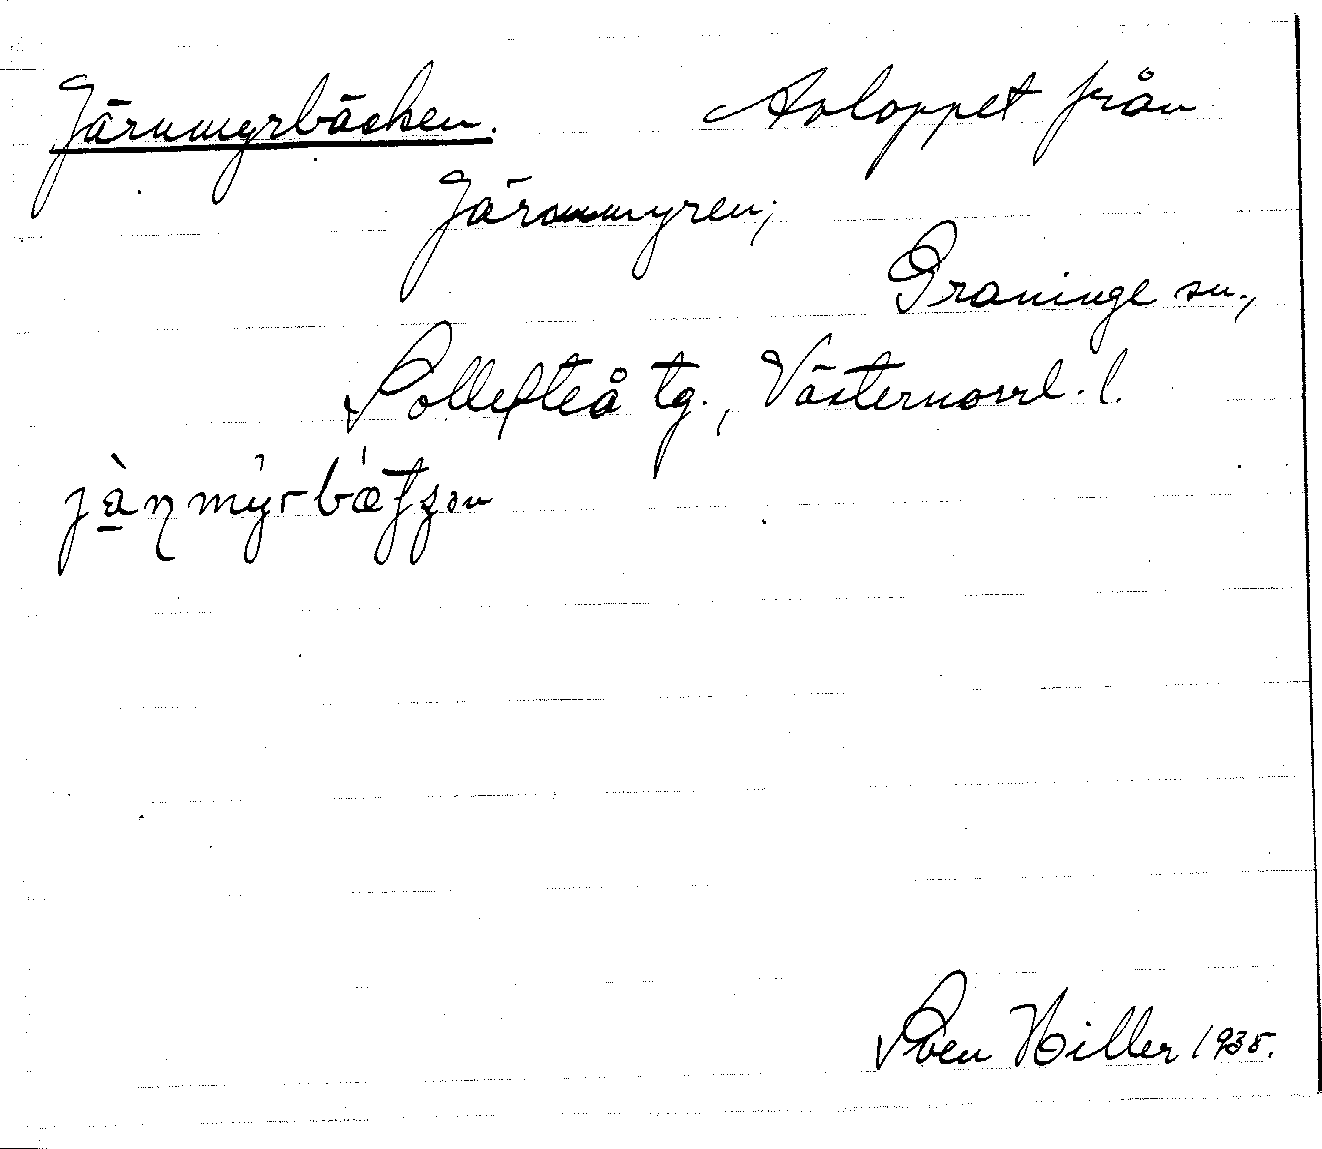 Järnmyrbäcken. Avloppet från
Järnmyren;
Graninge sn.,
Sollefteå tg., Västernorrl. l.
Sven Hiller 1935.